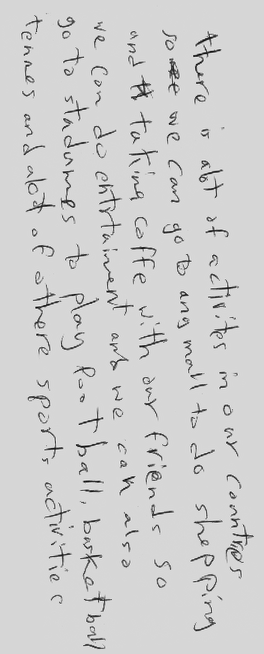 there is alot of activites in our countres
so we can go to any mall to do shepping
and taking coffe with our friends so
we can do entertainment and we can also
go to stadumes to play foot ball, basket ball
tennes and alot of othere sports activities